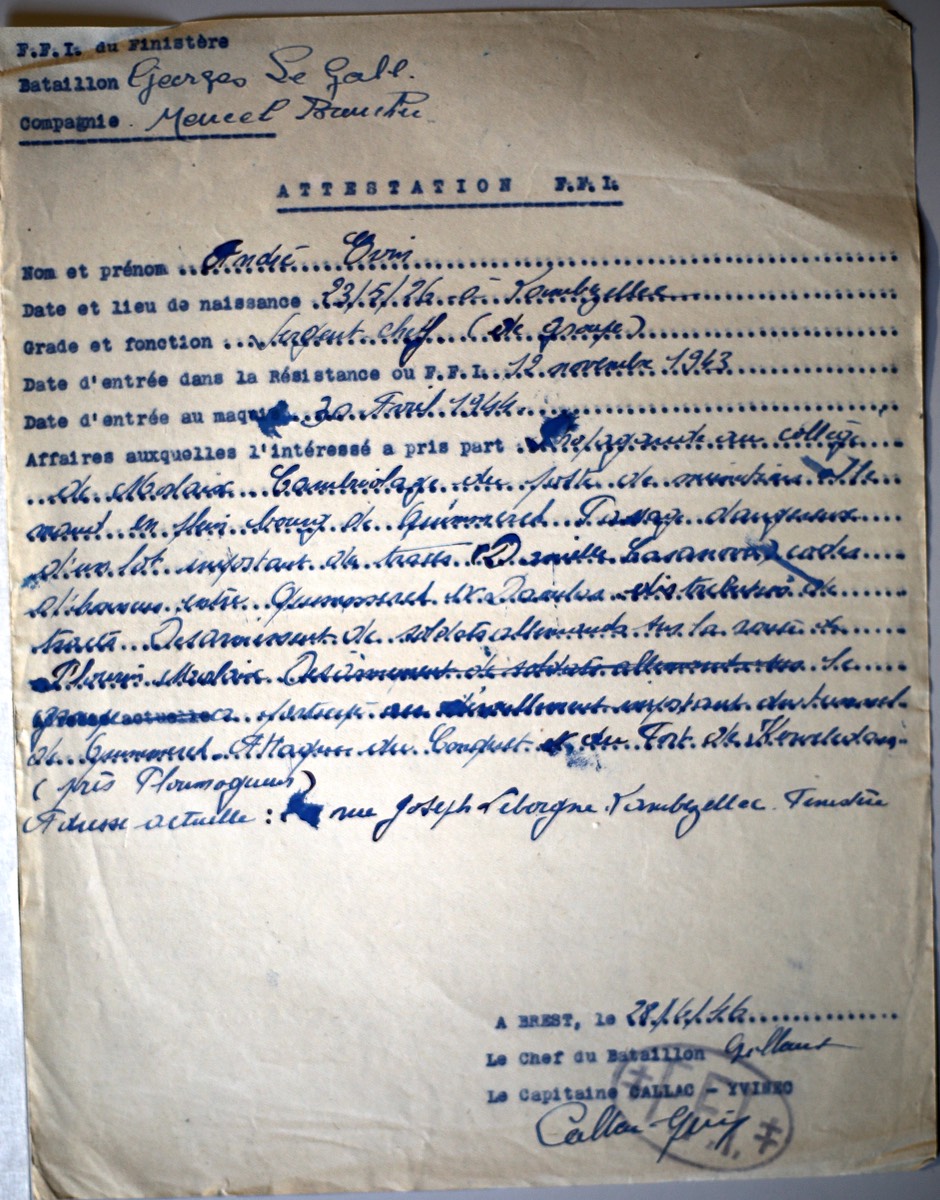 F.F.I. du Finistère
Bataillon Georges Le Gall.
Compagnie Marcel
ATTESTATION F.F.I.
Nom et prénom André
Date et lieu de naissance 23/5/26 à Lambezellec
Grade et fonction Sergent chef (de groupe)
Date d'entrée dans la Résistance ou F.F.I. 12 novembre 1943
Date d'entrée au maquis Avril 1944
Affaires auxquelles l'intéressé a pris part Propagande au collège
de Morlaix Cambriolage du poste de munitions Alle
mand en plein bourg de Quimperlé Passage dangereux
d'un lot important de tracts (Danielle Casanova) codes
d'honneur entre et Daoulas distribution de
tracts Desarmement de soldats allemands sur la route de
Plourin Morlaix Desarmement de soldats allemands Le
groupe actuelle a participé au déraillement important du tunnel
de Attaque du Conquet et du Fort de
(près Ploumoguer)
Adresse actuelle : rue Joseph Leborgne Lambezellec Finistère
A BREST, le 28/4/46
Le Chef du Bataillon
Le Capitaine CALLAC - YVINEC